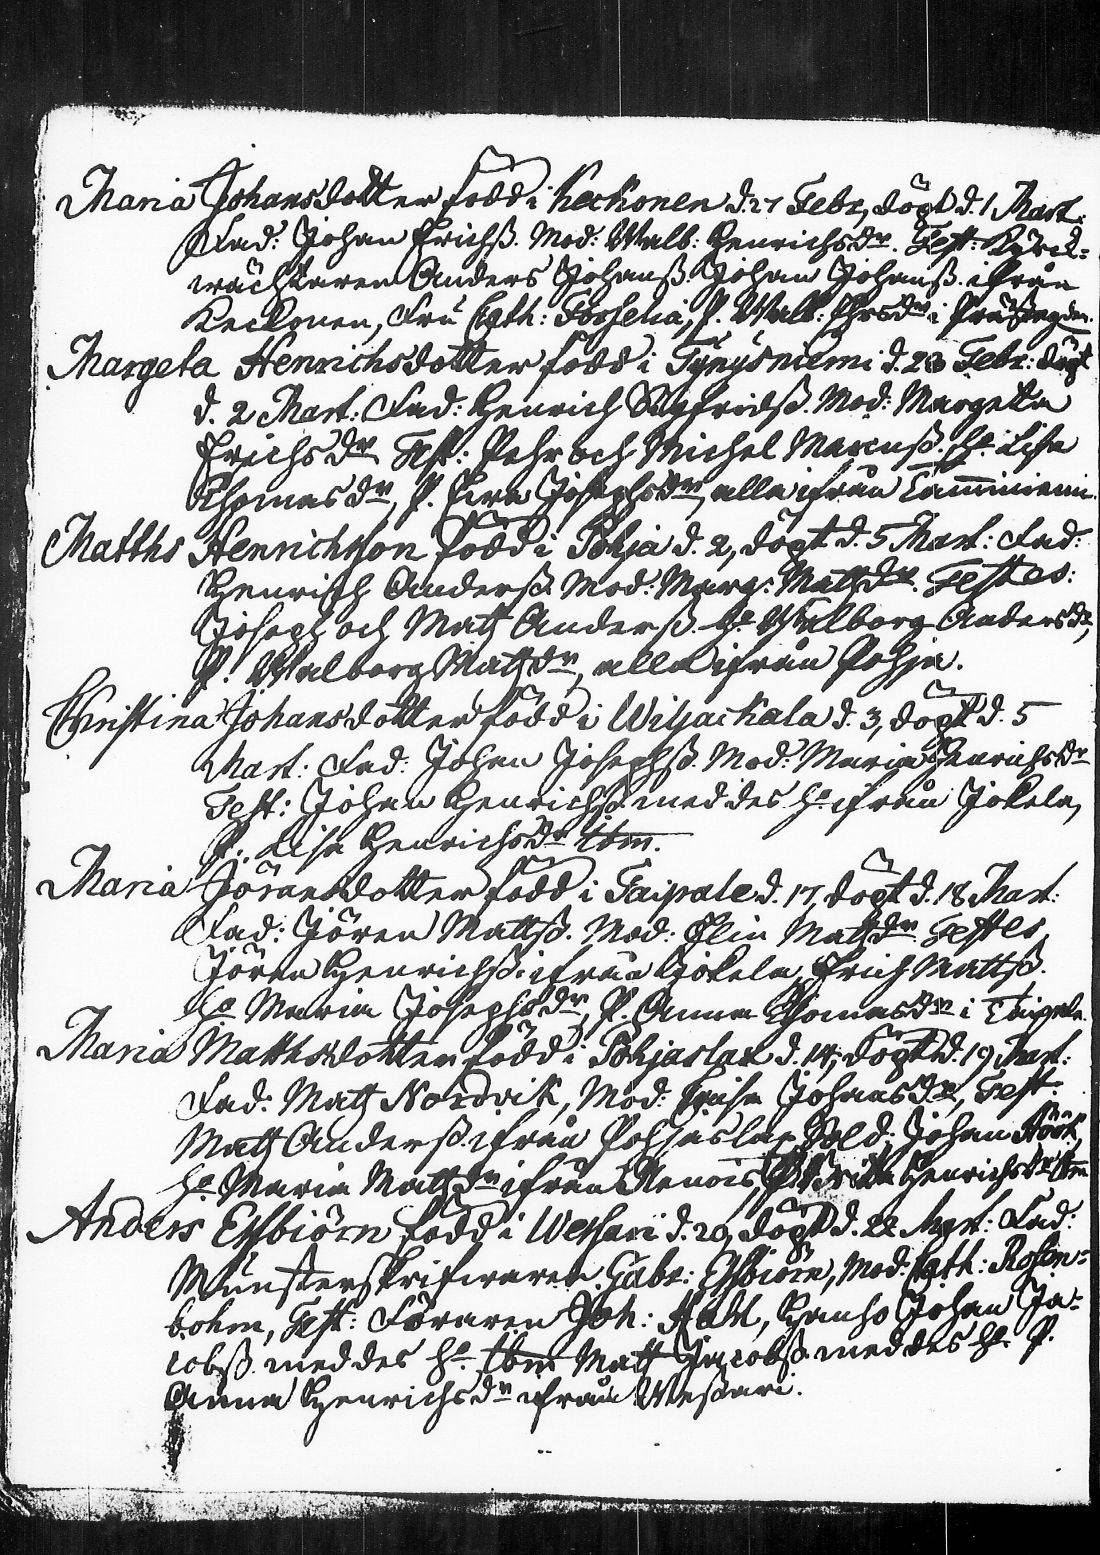 Maria Johansdotter född i Keckonen d. 27 Febr, dögt d. 1 Mart:
Fad: Johan Erichß. Mod: Walb: Henrichsdr. Test: Kyrck-
wächtaren Anders Johanß. Johan Johanß. ifrån
Keckonen, Fru Cath: Forselia, P. Walb:
Margeta Henrichsdotter född i Tyrysniemi d. 23 Febr: dögt
d. 2 Mart: Fad: Henrich Sigfridß. Mod: Margetta
Erichsdr Test: Pehr och Michel Marcuß. Ho Lisa
Thomasdr, P. Josephsdr, alla ifrån Tamminiemi.
Matths Henrichsson född i Pohja d. 2, dögt d. 5 Mart: Fad:
Henrich Anderß. Mod: Marg: Mattsdr. Testes:
Joseph och Matz Anderß. Ho Walborg Andersdr,
P. Walborg Matzdr, alla ifrån Pohja.
Christina Johansdotter född i Wiljackala d. 3, dögt d. 5
Mart: Fad: Johan Josephß. Mod: Maria Henrichsdr
Test: Johan Henrichß. med des Ho ifrån Jokela,
P. Lisa Henrichsdr ibm.
Maria Jöransdotter född i Taipale d. 17, dögt d. 18 Mart:
Fad: Jören Mattß. Mod: Elin Matzdr Testes,
Jören Henrichß. ifrån Jokela, Erich Mattß.
Ho Maria Josephsdr, P. Anna Thomasdr i Taipale.
Maria Matthsdotter född i Pohjaslax d. 14, dögt d. 19 Mart:
Fad: Matz Nordvik, Mod: Johansdr, Test:
Matz Anderß. ifrån Pohjaslax, Sold: Johan
Ho Maria Matzdr ifrån P. Brita Henrichsdr ibm
Anders Essbiörn född i Wessari d. 20, dögt d. 22 Mart: Fad:
Münsterskrifwaren Gabr: Essbiörn, Mod: Cath: Rosen-
bohm, Test: Föraren Joh: Hanß Johan Ja-
cobß. med des Ho. ibm Matt Jacobß. med des Ho. P.
Anna Henrichsdr ifrån Weßari.